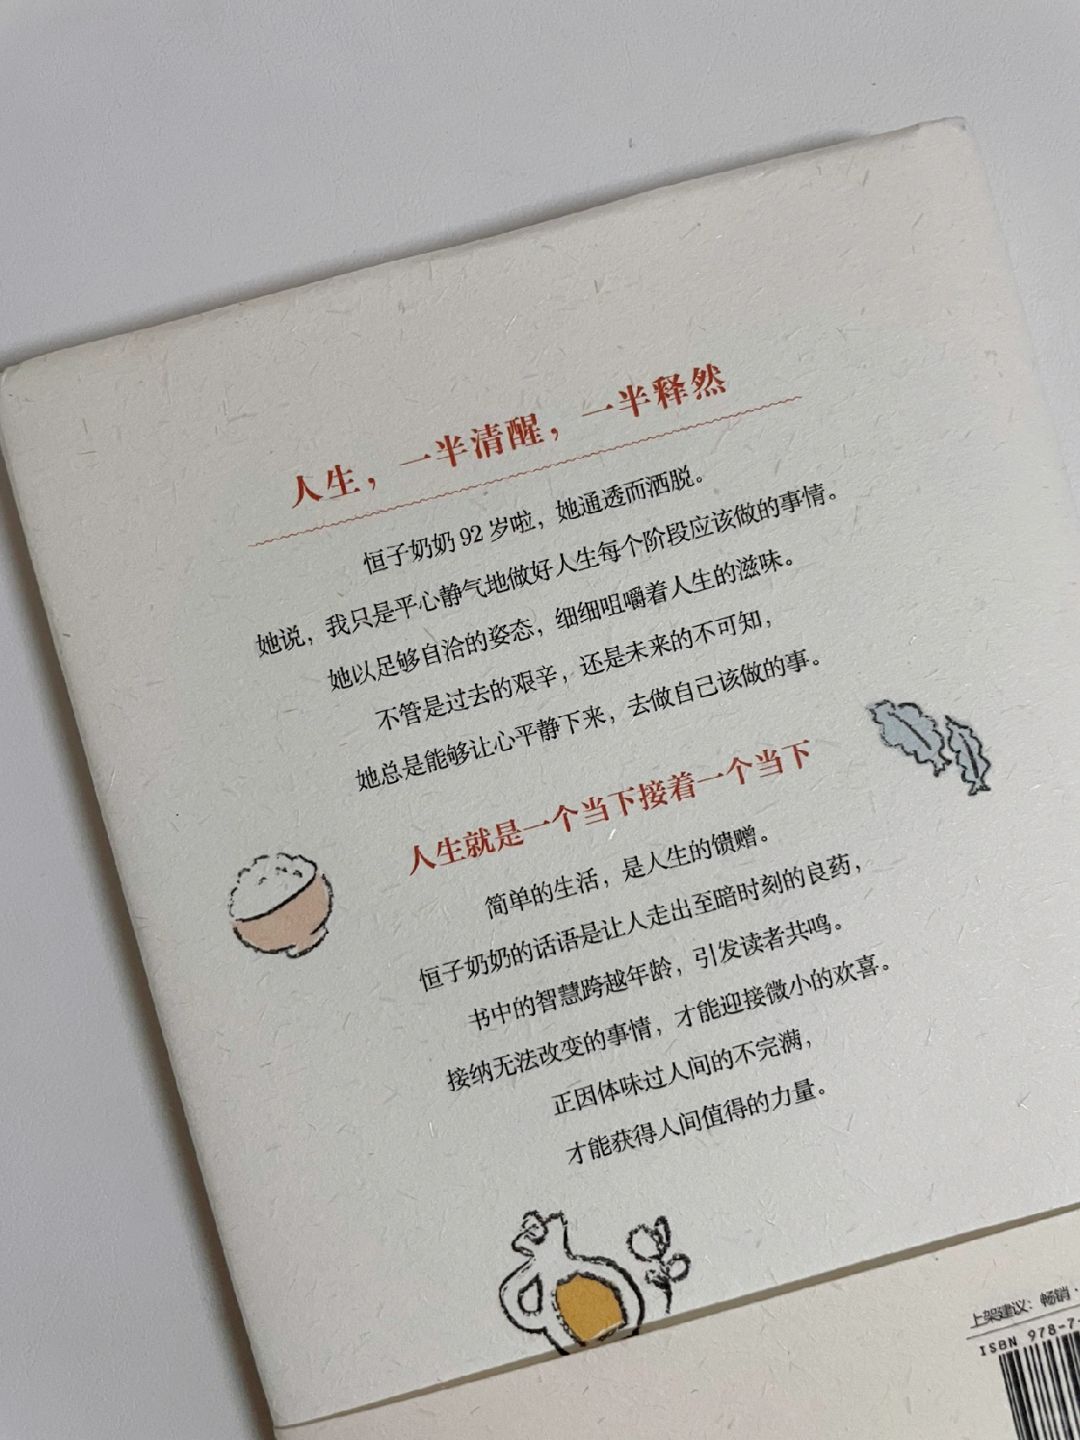 人生，一半清醒，一半释然
恒子奶奶 92 岁啦，她通透而洒脱。
她说，我只是平心静气地做好人生每个阶段应该做的事情。
她以足够自洽的姿态，细细咀嚼着人生的滋味。
不管是过去的艰辛，还是未来的不可知，
她总是能够让心平静下来，去做自己该做的事。
人生就是一个当下接着一个当下
简单的生活，是人生的馈赠。
恒子奶奶的话语是让人走出至暗时刻的良药，
书中的智慧跨越年龄，引发读者共鸣。
接纳无法改变的事情，才能迎接微小的欢喜。
正因体味过人间的不完满，
才能获得人间值得的力量。
上架建议：畅销·
ISBN 978-7-